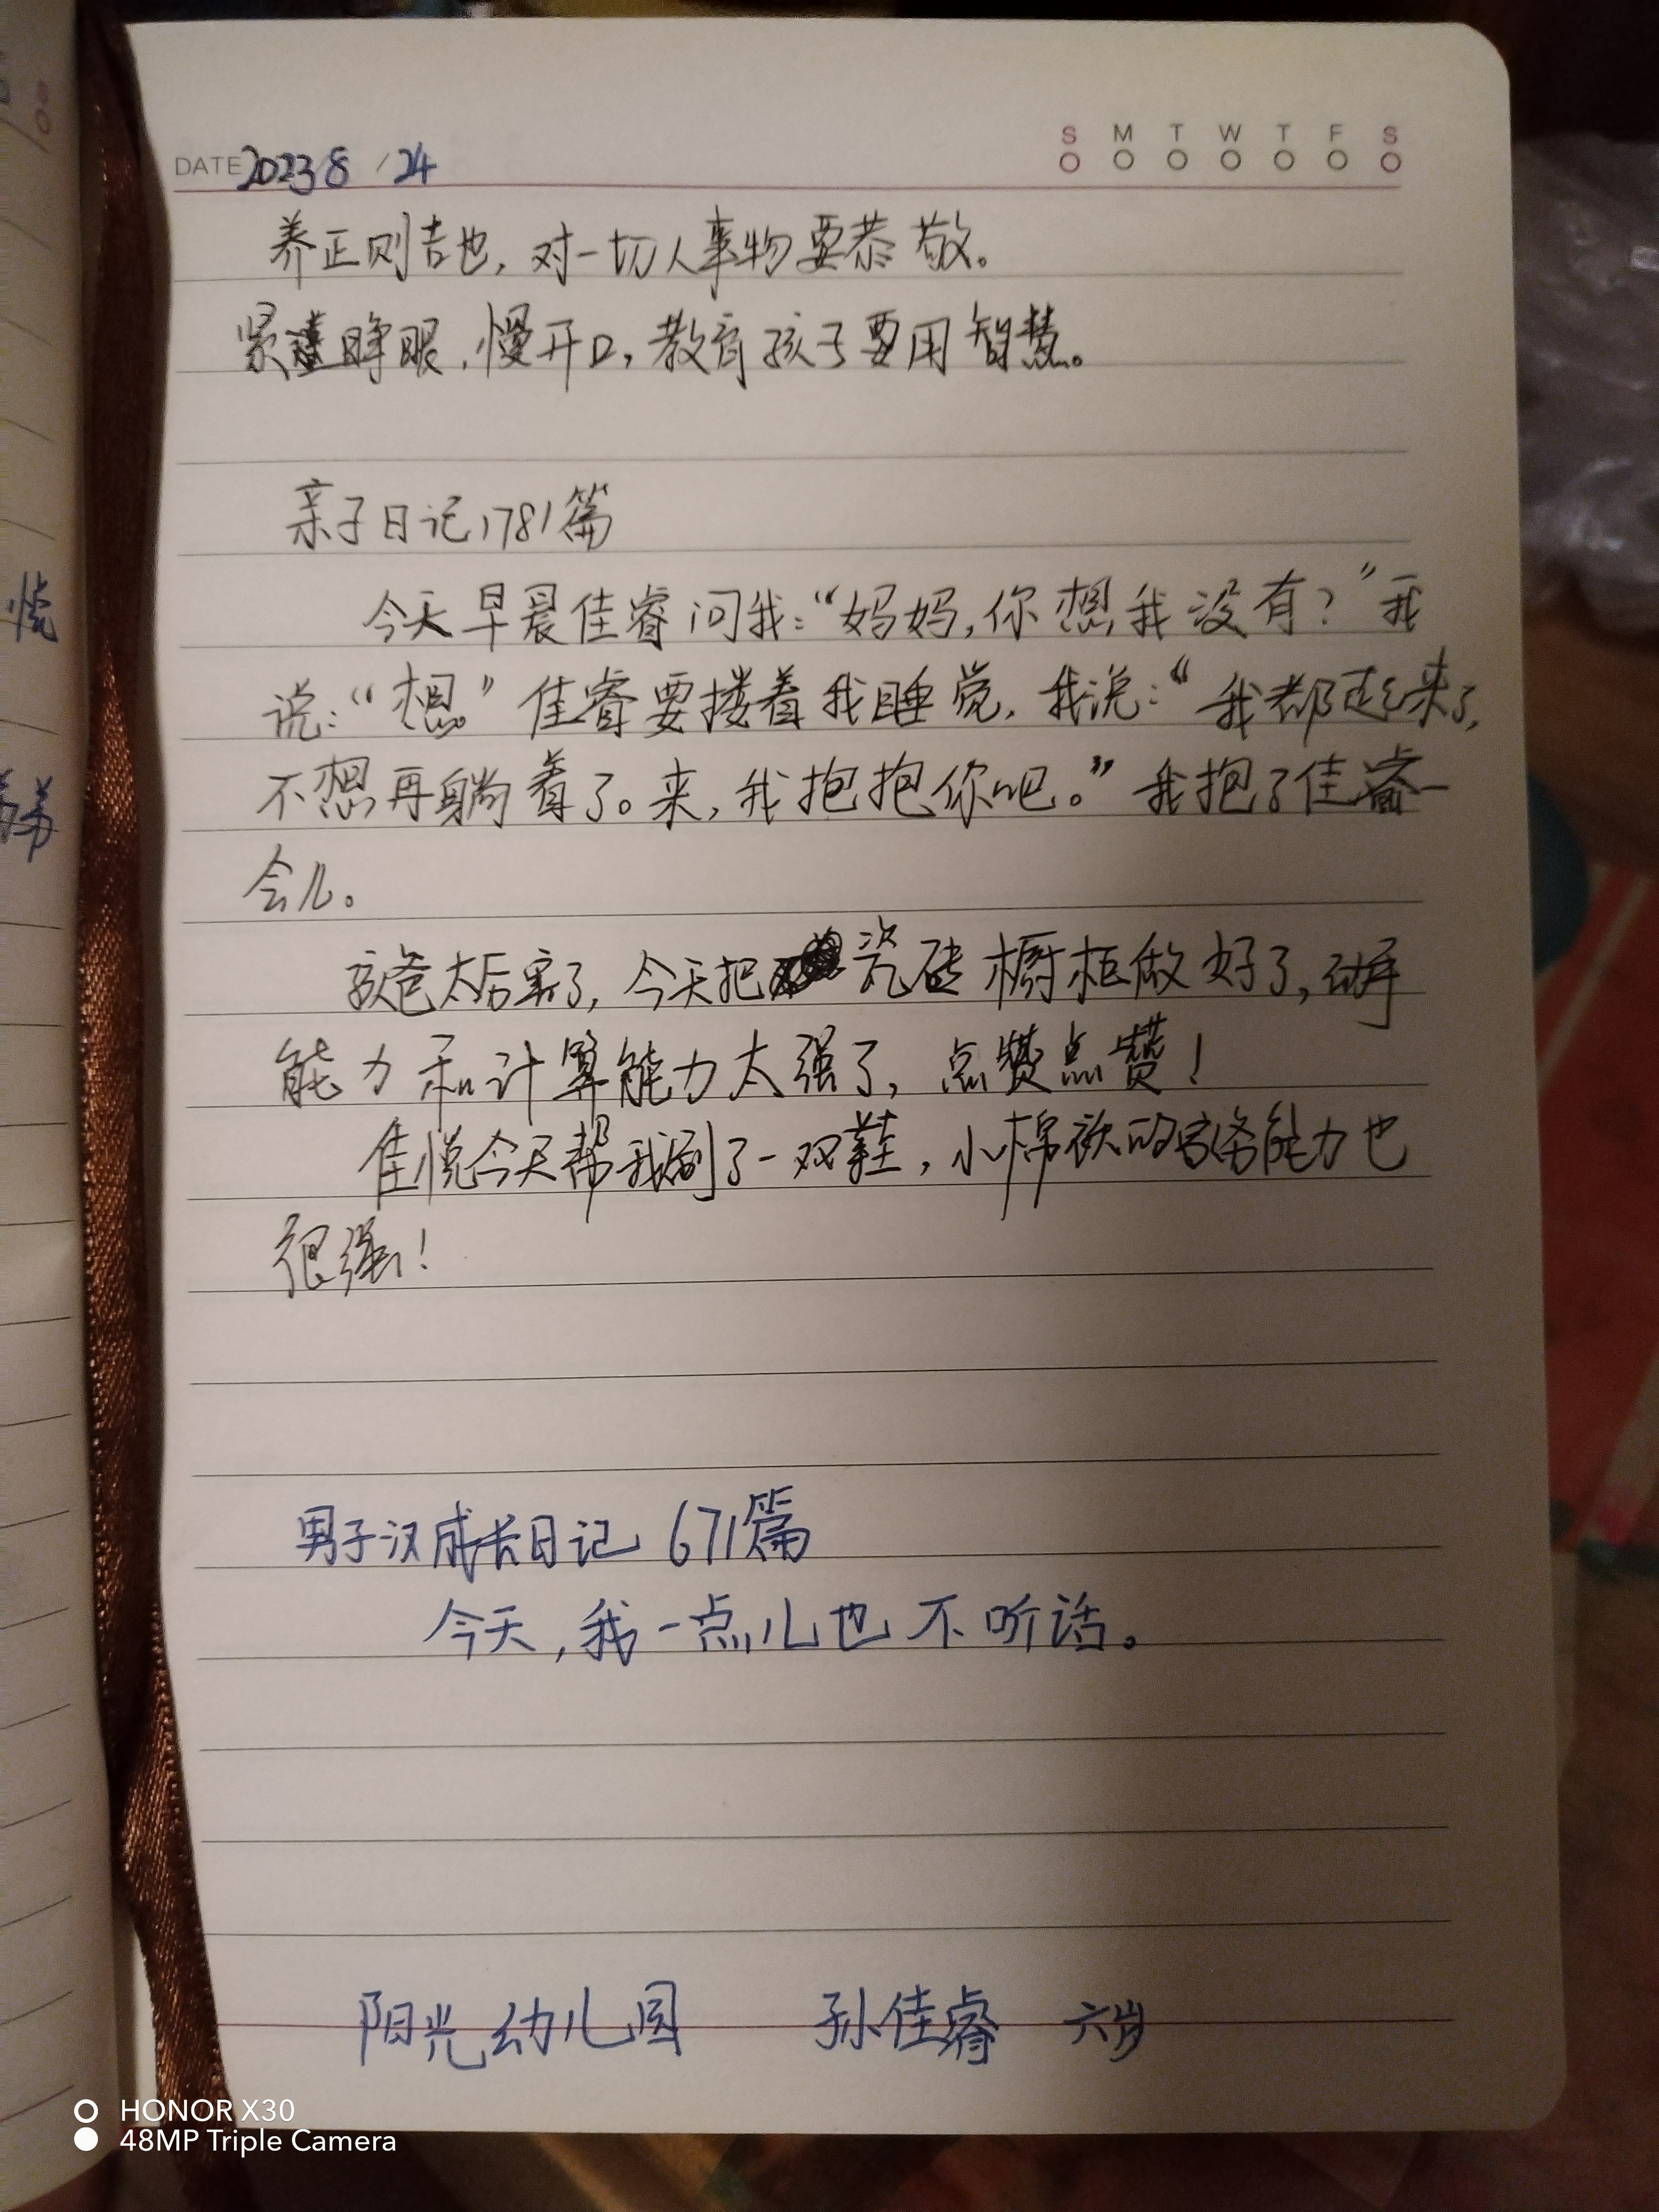 S M T W T F S
DATE 2023 8 / 24
养正则吉也，对一切人事物要恭敬。
紧睁眼，慢开口，教育孩子要用智慧。
亲子日记1781篇
今天早晨佳睿问我：“妈妈，你想我没有？”我
说：“想。”佳睿要搂着我睡觉，我说：“我都起来了，
不想再躺着了。来，我抱抱你吧。”我抱了佳睿一
会儿。
孩爸太厉害了，今天把瓷砖橱柜做好了，动手
能力和计算能力太强了，点赞点赞！
佳悦今天帮我刷了一双鞋，小棉袄的家务能力也
很强！
男子汉成长日记 671篇
今天，我一点儿也不听话。
阳光幼儿园 孙佳睿 六岁
HONOR X30
48MP Triple Camera